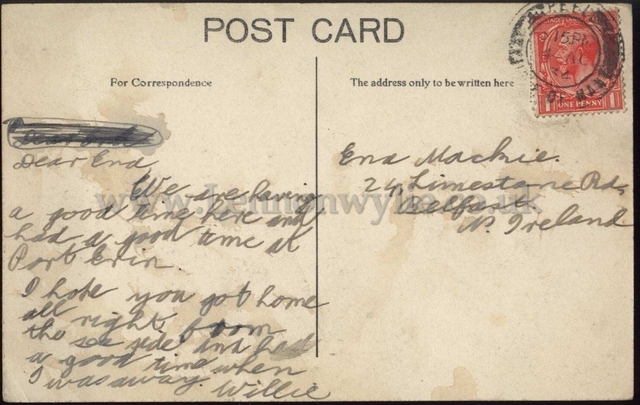 POST CARD
For Correspondence
The address only to be written here
ONE PENNY
Dear End
We are having
a good time here and
had a good time at
Port Erin.
I hope you got home
all right from
the sea side and had
a good time when
I was away. Willie
Ena Mackie.
24, Limestone Rd,
Belfast
N. Ireland
www.lennonwylie.co.uk